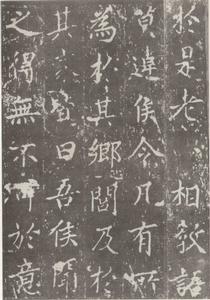 於是老相教語
莫違侯令凡有所
為於其鄉閭及於
其家皆曰吾侯聞
之得無不可於意